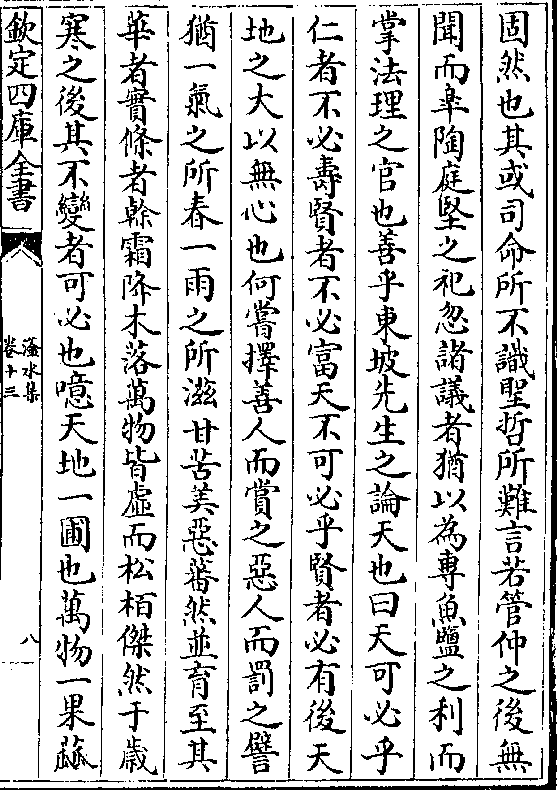 固然也其或司命所不識聖哲所難言若管仲之後無
聞而臯陶庭堅之祀忽諸議者猶以為專魚鹽之利而
掌法理之官也善乎東坡先生之論天也曰天可必乎
仁者不必壽賢者不必富天不可必乎賢者必有後天
地之大以無心也何嘗擇善人而賞之惡人而罰之譬
猶一氣之所春一雨之所滋甘苦美惡蕃然並育至其
華者實條者榦霜降木落萬物皆虛而松栢傑然于歲
寒之後其不變者可必也噫天地一圃也萬物一果蓏
欽定四庫全書
滏水集
卷十三
八